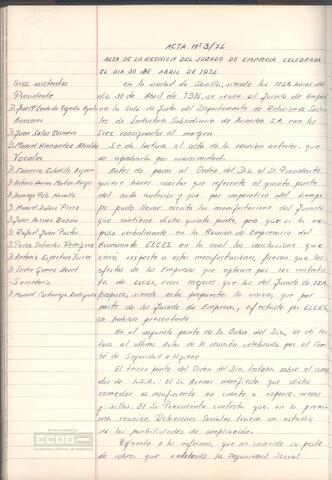 ACTA Nº 3/76
ACTA DE LA REUNION DEL JURADO DE EMPRESA CELEBRADA
EL DIA 30 DE ABRIL DE 1976
Sres asistentes
Presidente
Asesores
D. Juan Salas
D. Manuel Hernandez
Vocales
D. Manuel
D. Juan Arenas Bazán
D. Rafael Juan
D. Carlos Rodriguez
D. Antonio Espectura Torres
Secretario
D. Manuel Rodriguez
en la ciudad de Sevilla, siendo las horas del
dia 30 de Abril de 1976, se reune el Jurado de Empresa
en la Sala de Junta del Departamento de Relaciones Sociales
de Industria Subsidiaria de Aviación S.A. con los
Sres consignados al margen
Se da lectura al acta de la reunión anterior, que
es aprobada por unanimidad.
Antes de pasar al Orden del Dia, el Sr. Presidente
quiere hacer constar que referente al quinto punto
del acta anterior y que por imperativo del tiempo
no pudo llevar escrito las manifestaciones del Jurado
que contiene dicho quinto punto, pero que si la ex
puso verbalmente en la Reunion de Empresarios del
Economato ELCES en la cual las conclusiones que
sacó respecto a estas manifestaciones, fueron que las
ofertas de las Empresas que optaron por ser
de ELCES, eran mejores que las del Jurado de ISA
propuso, siendo esta propuesta la unica, que por
parte de los Jurado de Empresas, afectado por ELCES,
se habian presentado
En el segundo punto de la Orden del Dia, se dá lec
tura al ultimo Acta de la reunión celebrada por el Comi
té de Seguridad e Higiene
El tercer punto del Orden del Dia, trataba sobre el come
dor de I.S.A.: El Sr Arenas manifiesta que dicho
comedor es insuficiente en cuanto a espacio, mesas
y sillas. El Sr. Presidente contesta que, en la proxi
ma reunión, Relaciones Sociales traera un estudio
de las posibilidades de ampliación.
Referente a los informes, que no coincide su parte
de obra, que la Seguridad Social